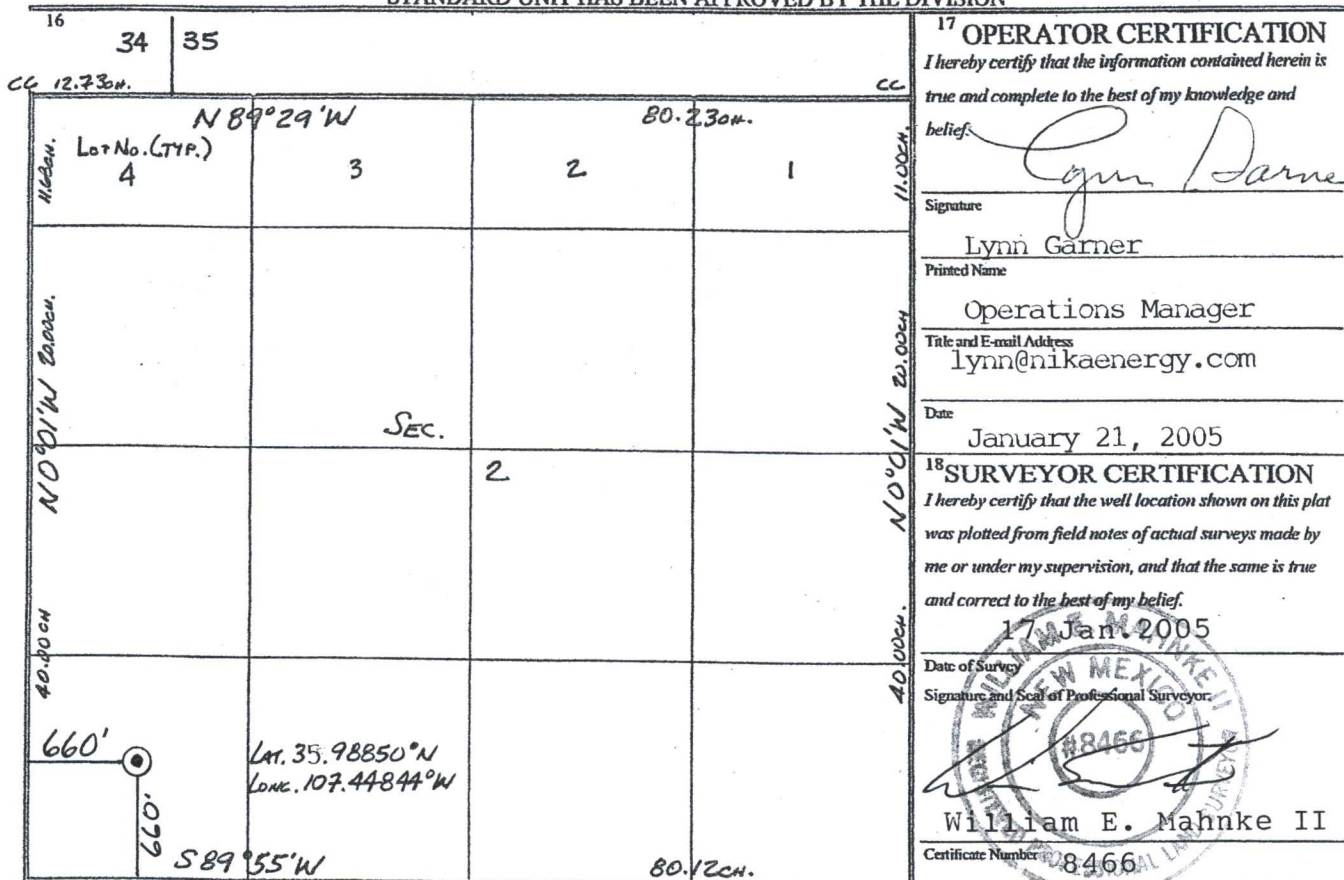 STANDARD UNIT HAS BEEN APPROVED BY THE DIVISION
16
34 35
CC 12.73CH. CC
N 89°29'W 80.23CH.
LOT NO. (TYP.)
4 3 2 1
11.00CH.
N0°01'W 20.00CH.
N0°01'W 20.00CH
SEC.
2
40.00CH
40.00CH.
660'
LAT. 35.98850°N
LONG. 107.44844°W
660'
S 89°55'W 80.12CH.
17 OPERATOR CERTIFICATION
I hereby certify that the information contained herein is
true and complete to the best of my knowledge and
belief.
Signature
Lynn Garner
Printed Name
Operations Manager
Title and E-mail Address
lynn@nikaenergy.com
Date
January 21, 2005
18 SURVEYOR CERTIFICATION
I hereby certify that the well location shown on this plat
was plotted from field notes of actual surveys made by
me or under my supervision, and that the same is true
and correct to the best of my belief.
17 Jan. 2005
Date of Survey
Signature and Seal of Professional Surveyor:
WILLIAM E. MAHNKE II
NEW MEXICO
#8466
PROFESSIONAL LAND SURVEYOR
William E. Mahnke II
Certificate Number 8466